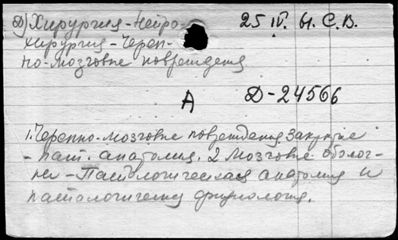 Д) Хирургия - Нейро- 25 IV. 61. С.В.
хирургия - Череп-
но-мозговые повреждения
А Д-24566
1. Черепно-мозговые повреждения закрытые
- пат. анатомия. 2 Мозговые оболоч-
ки - Патологическая анатомия и
патологическ физиология.